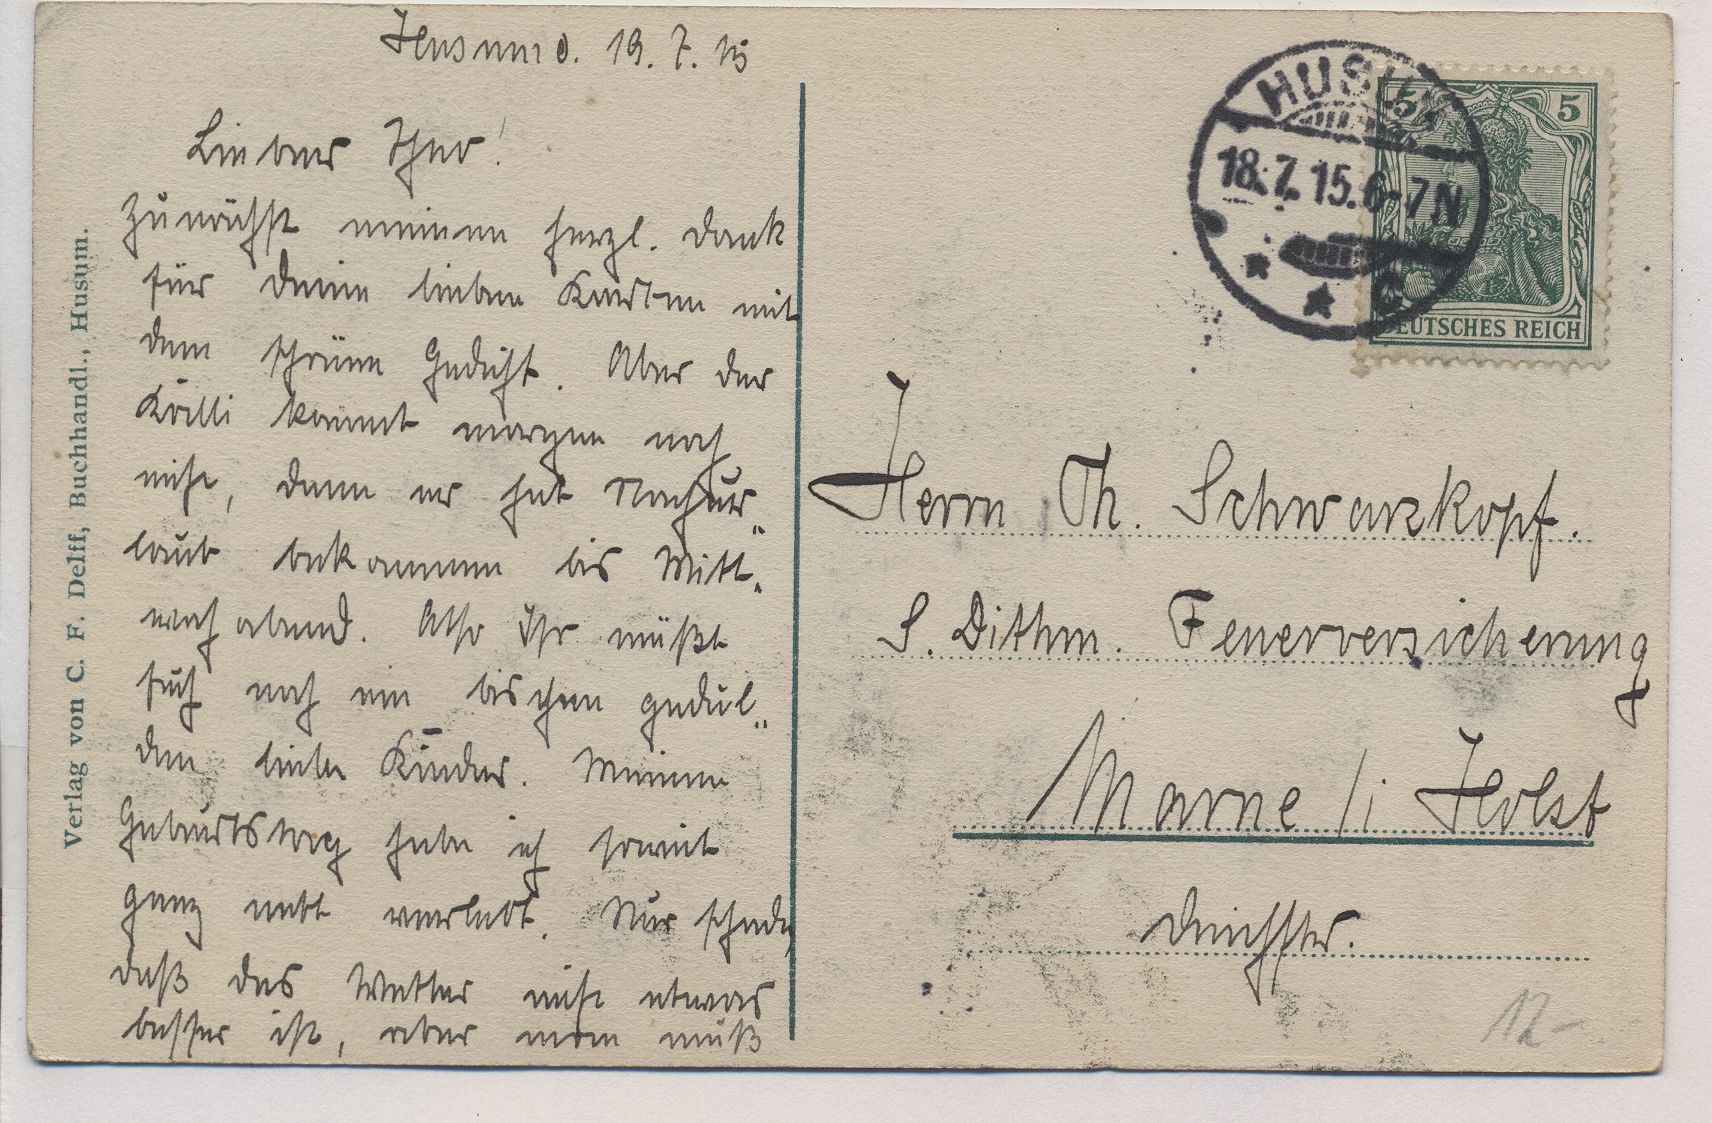 Husum d. 19.7.15
Lieber Theo!
Zunächst meinen herzl. Dank
für Deine lieben Karten mit
dem schönen Gedicht. Aber der
Willi kommt morgen noch
nicht, denn er hat Nachur-
laub bekommen bis Mitt-
woch abend. Also Ihr müßt
Euch noch ein bischen gedul-
den, liebe Kinder. Meinen
Geburtstag habe ich soweit
ganz nett verlebt. Nur schade,
daß das Wetter nicht etwas
besser ist, aber man muß
Verlag von C. F. Delff, Buchhandl., Husum.
HUSUM
18.7.15.6-7N
* * c
5 5
DEUTSCHES REICH
Herrn Th. Schwarzkopf.
S. Dithm. Feuerversicherung
Marne / i Holst
12-